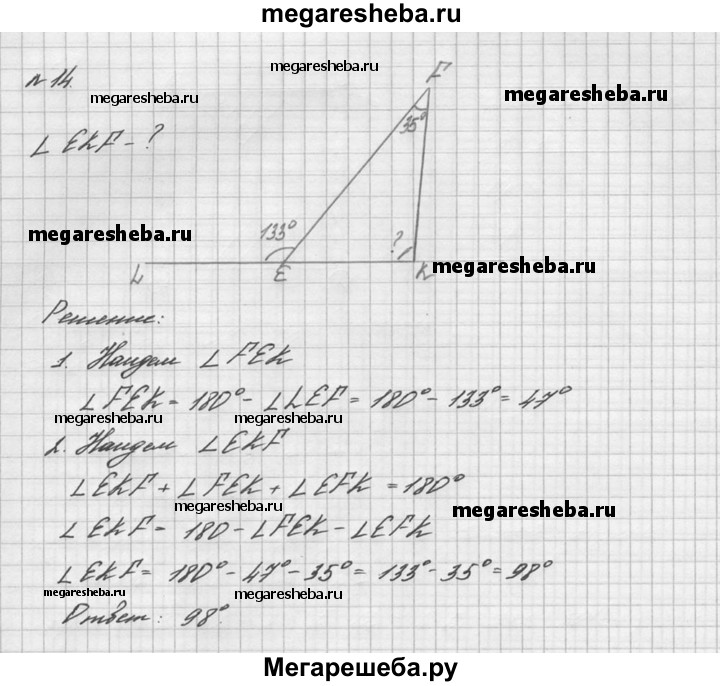 megaresheba.ru
megaresheba.ru
№ 14.
megaresheba.ru
megaresheba.ru
F
35°
∠ EKF - ?
megaresheba.ru
133°
?
L E K
megaresheba.ru
Решение:
1. Найдем ∠ FEK
∠ FEK = 180° - ∠ LEF = 180° - 133° = 47°
megaresheba.ru megaresheba.ru
2. Найдем ∠ EKF
∠ EKF + ∠ FEK + ∠ EFK = 180°
megaresheba.ru
megaresheba.ru
∠ EKF = 180 - ∠ FEK - ∠ EFK
∠ EKF = 180° - 47° - 35° = 133° - 35° = 98°
megaresheba.ru
Ответ: 98°.
megaresheba.ru
megaresheba.ru
Мегарешеба.ру